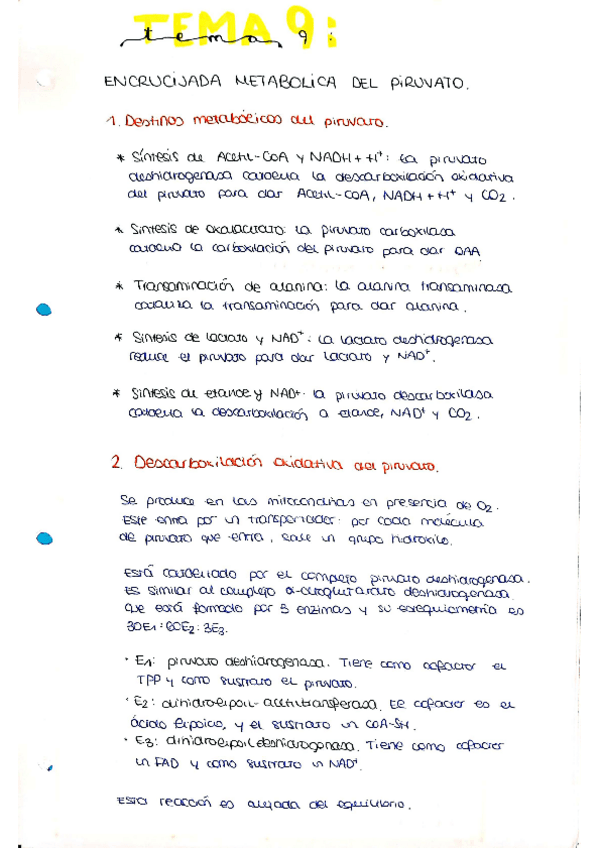 TEMA 9:
tema 9:
ENCRUCIJADA METABOLICA DEL PIRUVATO.
1. Destinos metabólicos del piruvato.
* Síntesis de Acetil-CoA y NADH + H+: la piruvato
deshidrogenasa cataliza la descarboxilación oxidativa
del piruvato para dar Acetil-CoA, NADH + H+ y CO2.
* Síntesis de oxalacetato: la piruvato carboxilasa
cataliza la carboxilación del piruvato para dar OAA
* Transaminación de alanina: la alanina transaminasa
cataliza la transaminación para dar alanina.
* Síntesis de lactato y NAD+: la lactato deshidrogenasa
reduce el piruvato para dar lactato y NAD+.
* Síntesis de etanol y NAD+: la piruvato descarboxilasa
cataliza la descarboxilación a etanol, NAD+ y CO2.
2. Descarboxilación oxidativa del piruvato.
Se produce en las mitocondrias en presencia de O2.
Este entra por un transportador: por cada molécula
de piruvato que entra, sale un grupo hidroxilo.
Está catalizado por el complejo piruvato deshidrogenasa.
Es similar al complejo α-cetoglutarato deshidrogenasa.
Que está formado por 3 enzimas y su estequiometría es
30E1:60E2:3E3.
· E1: piruvato deshidrogenasa. Tiene como cofactor el
TPP y como sustrato el piruvato.
· E2: dihidrolipoil-acetiltransferasa. El cofactor es el
ácido lipoico, y el sustrato un CoA-SH.
· E3: dihidrolipoil deshidrogenasa. Tiene como cofactor
un FAD y como sustrato un NAD+.
Esta reacción es alejada del equilibrio.